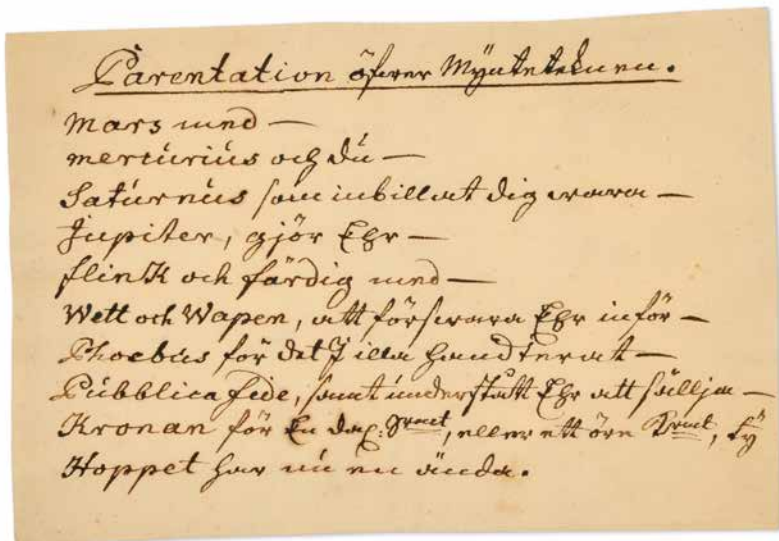 Parentation öfwer Mynteteknen.
Mars med —
mercurius och du —
Saturnus som inbillat dig wara —
Jupiter, gjör Ehr —
flinK och färdig med —
Wett och Wapen, att förswara Ehr inför —
Phoebus för det J illa handterat —
Pubblica fide, samt understått Ehr att sällja —
Kronan för En dal: Smt, eller ett öre Kmt, ty
Hoppet har nu en ända.